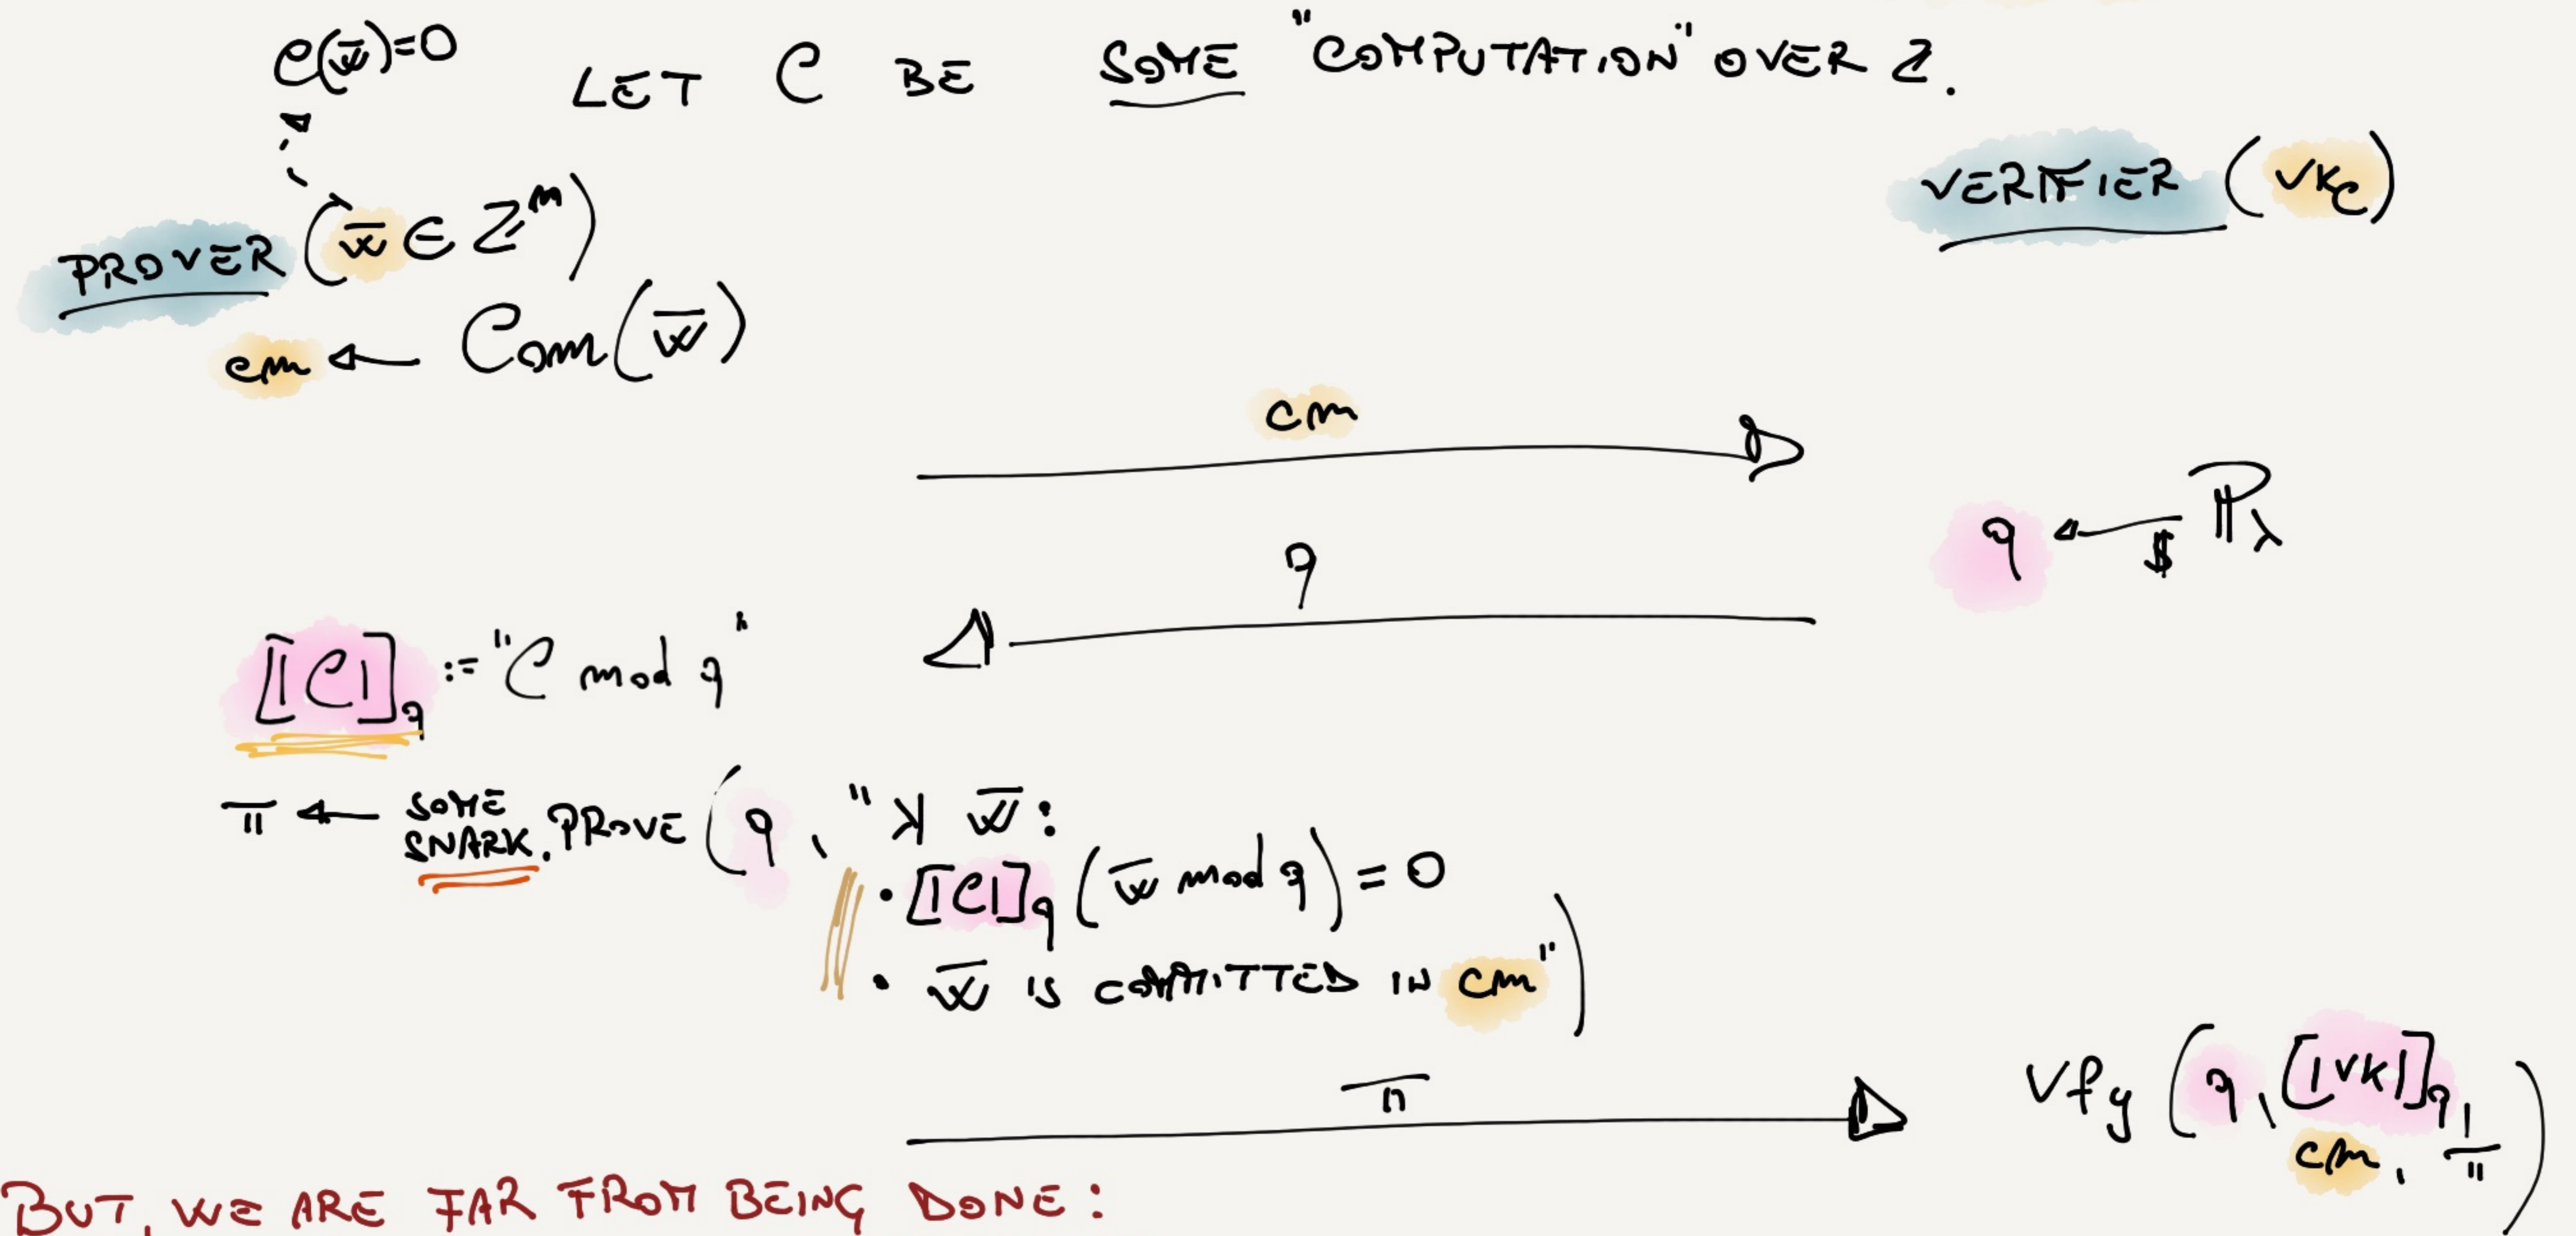 C(w̄)=0
LET C BE SOME "COMPUTATION" OVER Z.
VERIFIER (vk_C)
PROVER (w̄ ∈ Z^m)
cm ← Com(w̄)
cm
q ←$ ℙ_λ
q
[|C|]_q := "C mod q"
π ← SOME SNARK. PROVE (q, "∃ w̄:
• [|C|]_q (w̄ mod q) = 0
• w̄ IS COMMITTED IN cm")
π
Vfy (q, [|vk|]_q, cm, π)
BUT, WE ARE FAR FROM BEING DONE: